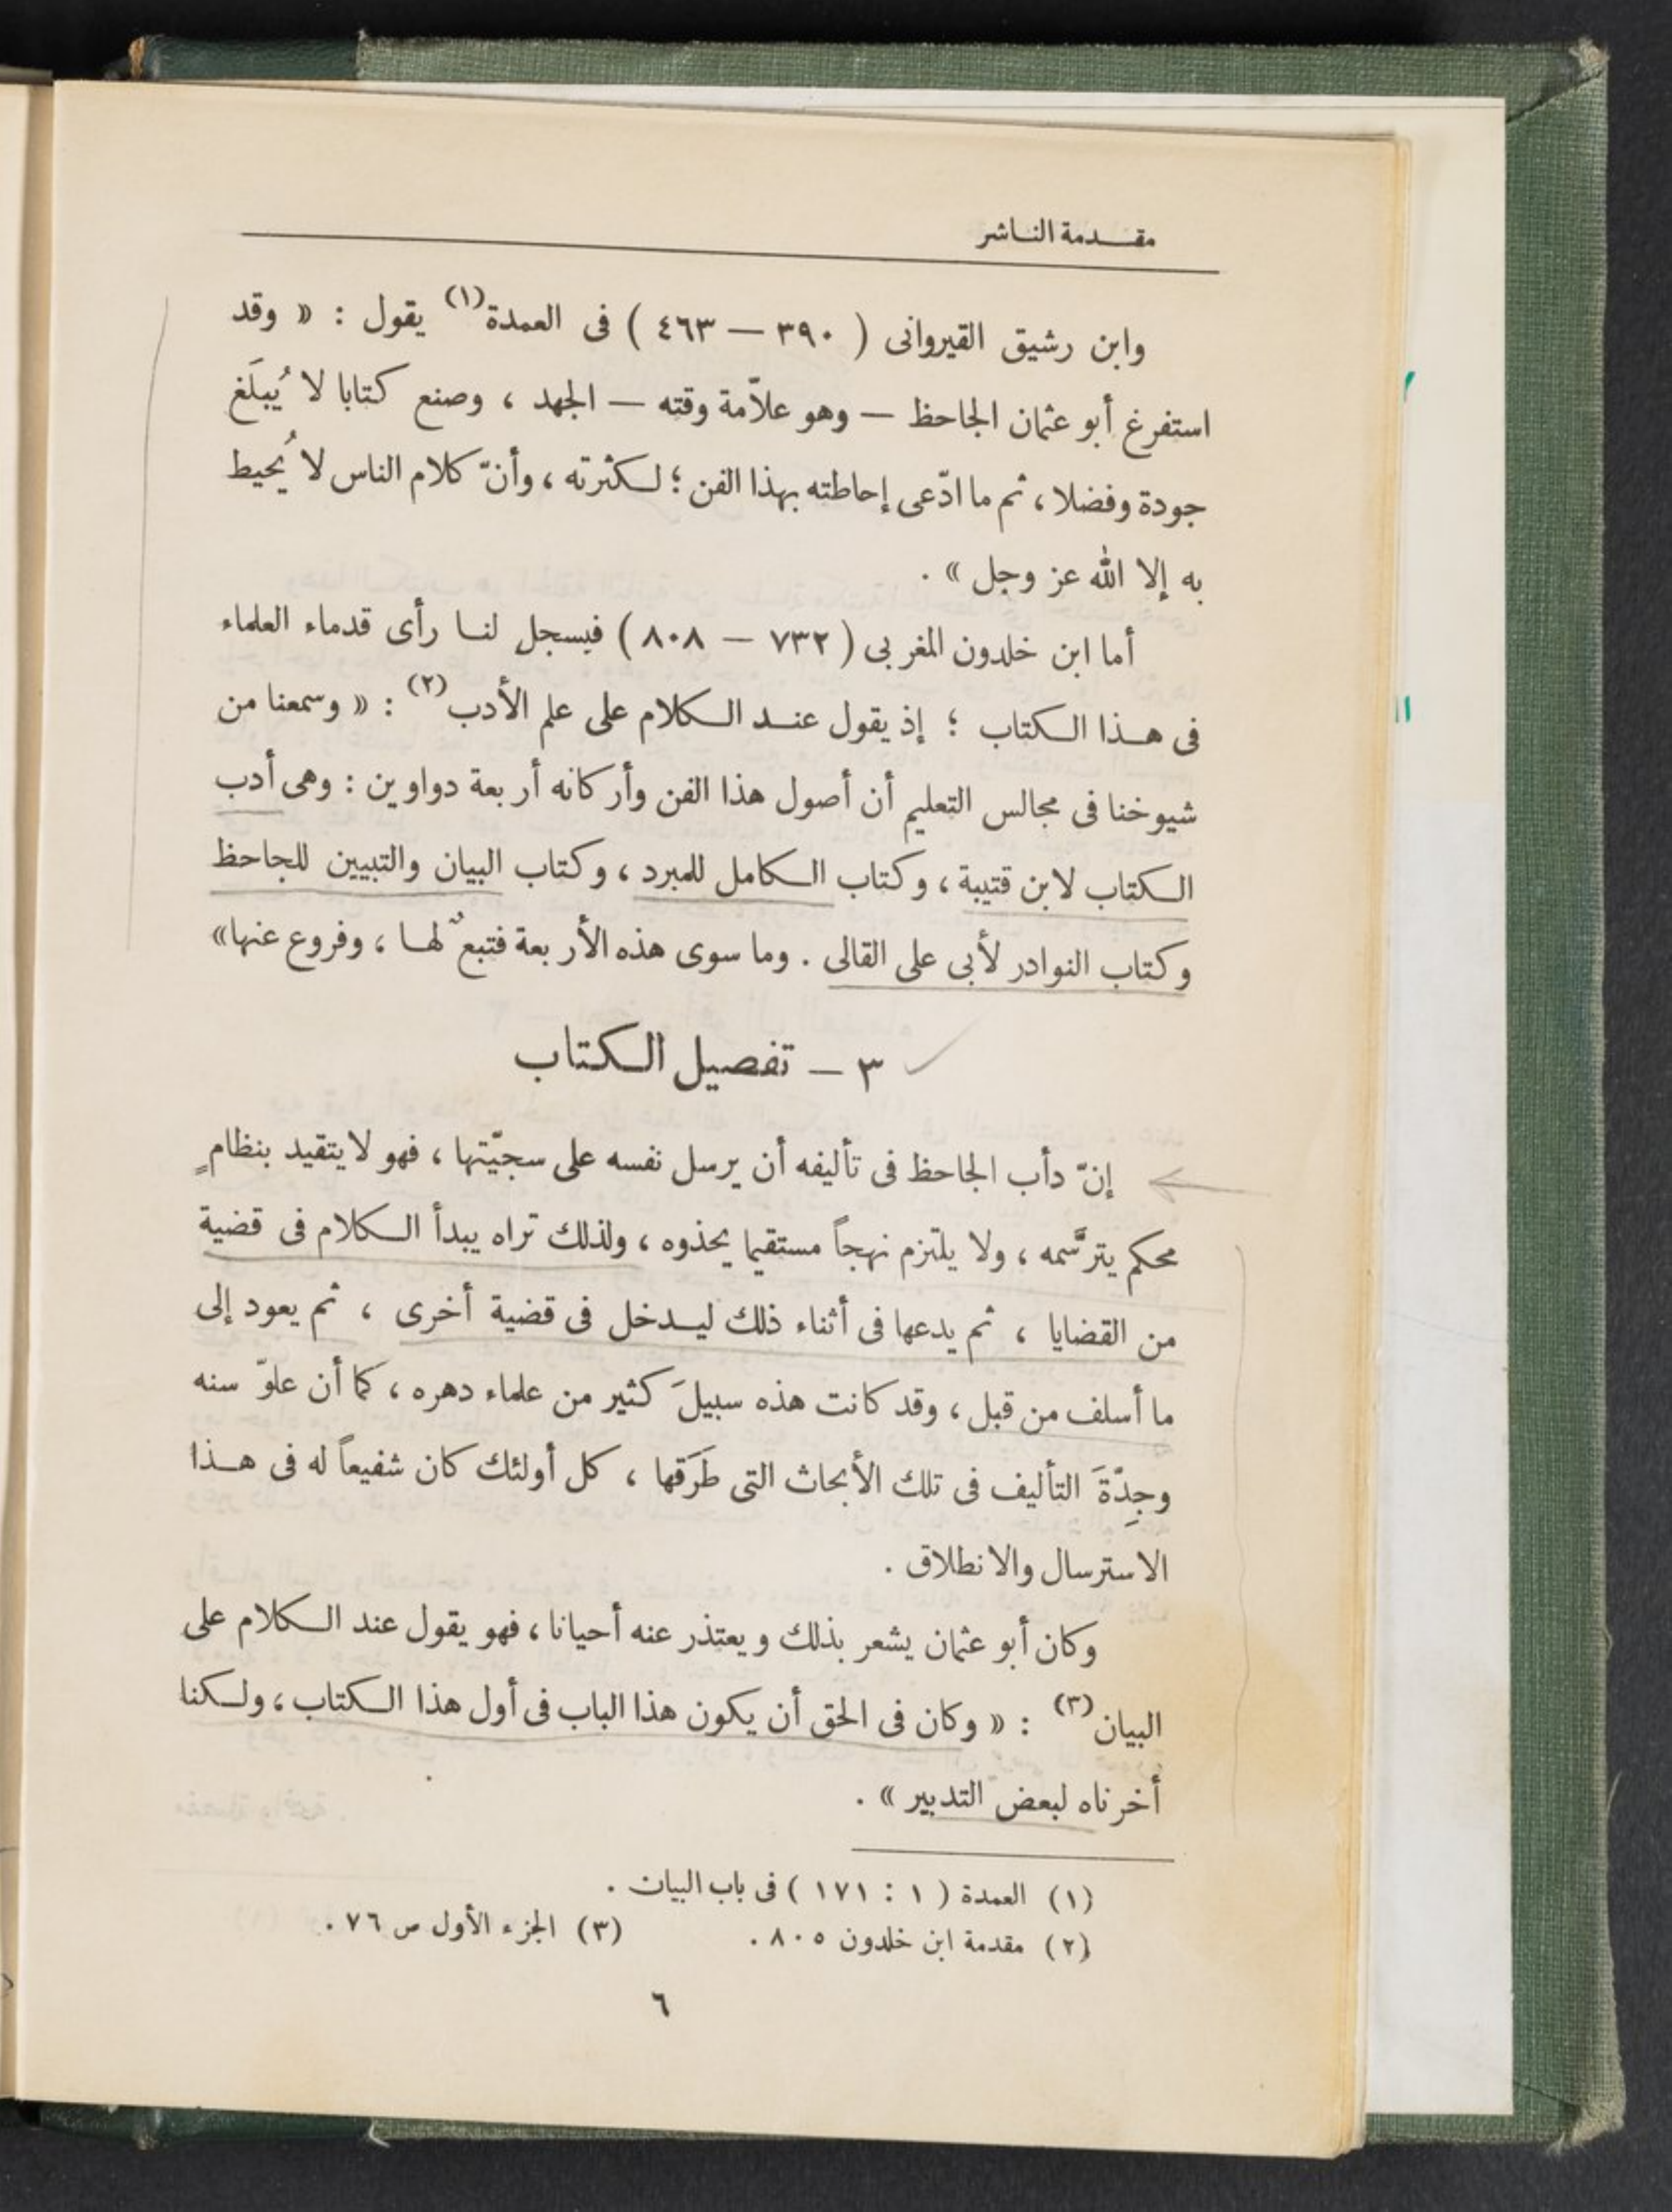 مقدمة الناشر
وابن رشيق القيروانى ( ٣٩٠ — ٤٦٣ ) فى العمدة(١) يقول : « وقد
استفرغ أبو عثمان الجاحظ — وهو علاّمة وقته — الجهد ، وصنع كتابا لا يُبلَغ
جودة وفضلا ، ثم ما ادّعى إحاطته بهذا الفن ؛ لكثرته ، وأنّ كلام الناس لا يُحيط
به إلا الله عز وجل » .
أما ابن خلدون المغربى ( ٧٣٢ — ٨٠٨ ) فيسجل لنا رأى قدماء العلماء
فى هذا الكتاب ؛ إذ يقول عند الكلام على علم الأدب(٢) : « وسمعنا من
شيوخنا فى مجالس التعليم أن أصول هذا الفن وأركانه أربعة دواوين : وهى أدب
الكتاب لابن قتيبة ، وكتاب الكامل للمبرد ، وكتاب البيان والتبيين للجاحظ
وكتاب النوادر لأبى على القالى . وما سوى هذه الأربعة فتبعٌ لها ، وفروع عنها »
٣ — تفصيل الكتاب
إنّ دأب الجاحظ فى تأليفه أن يرسل نفسه على سجيّتها ، فهو لا يتقيد بنظامٍ
محكم يترسَّمه ، ولا يلتزم نهجاً مستقيما يحذوه ، ولذلك تراه يبدأ الكلام فى قضية
من القضايا ، ثم يدعها فى أثناء ذلك ليدخل فى قضية أخرى ، ثم يعود إلى
ما أسلف من قبل ، وقد كانت هذه سبيلَ كثير من علماء دهره ، كما أن علوّ سنه
وجِدّةَ التأليف فى تلك الأبحاث التى طَرَقها ، كل أولئك كان شفيعاً له فى هذا
الاسترسال والانطلاق .
وكان أبو عثمان يشعر بذلك ويعتذر عنه أحيانا ، فهو يقول عند الكلام على
البيان(٣) : « وكان فى الحق أن يكون هذا الباب فى أول هذا الكتاب ، ولكنا
أخرناه لبعض التدبير » .
(١) العمدة ( ١ : ١٧١ ) فى باب البيان .
(٢) مقدمة ابن خلدون ٨٠٥ . (٣) الجزء الأول ص ٧٦ .
٦